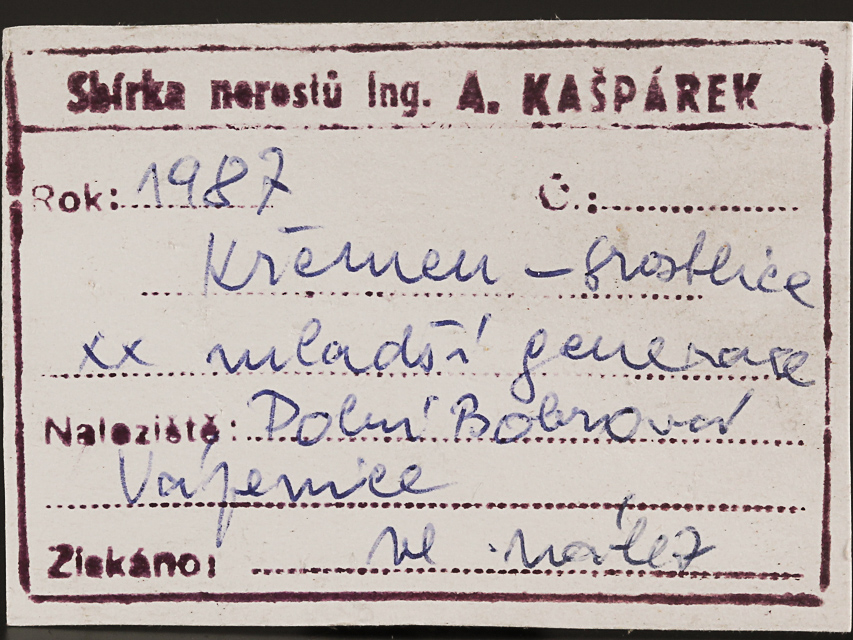 Sbírka nerostů Ing. A. KAŠPÁREK
Rok: 1987 Č.:
Křemen – srostlice
xx mladší generace
Naleziště: Dolní Bobrová
Vápenice
Získáno: vl. nález